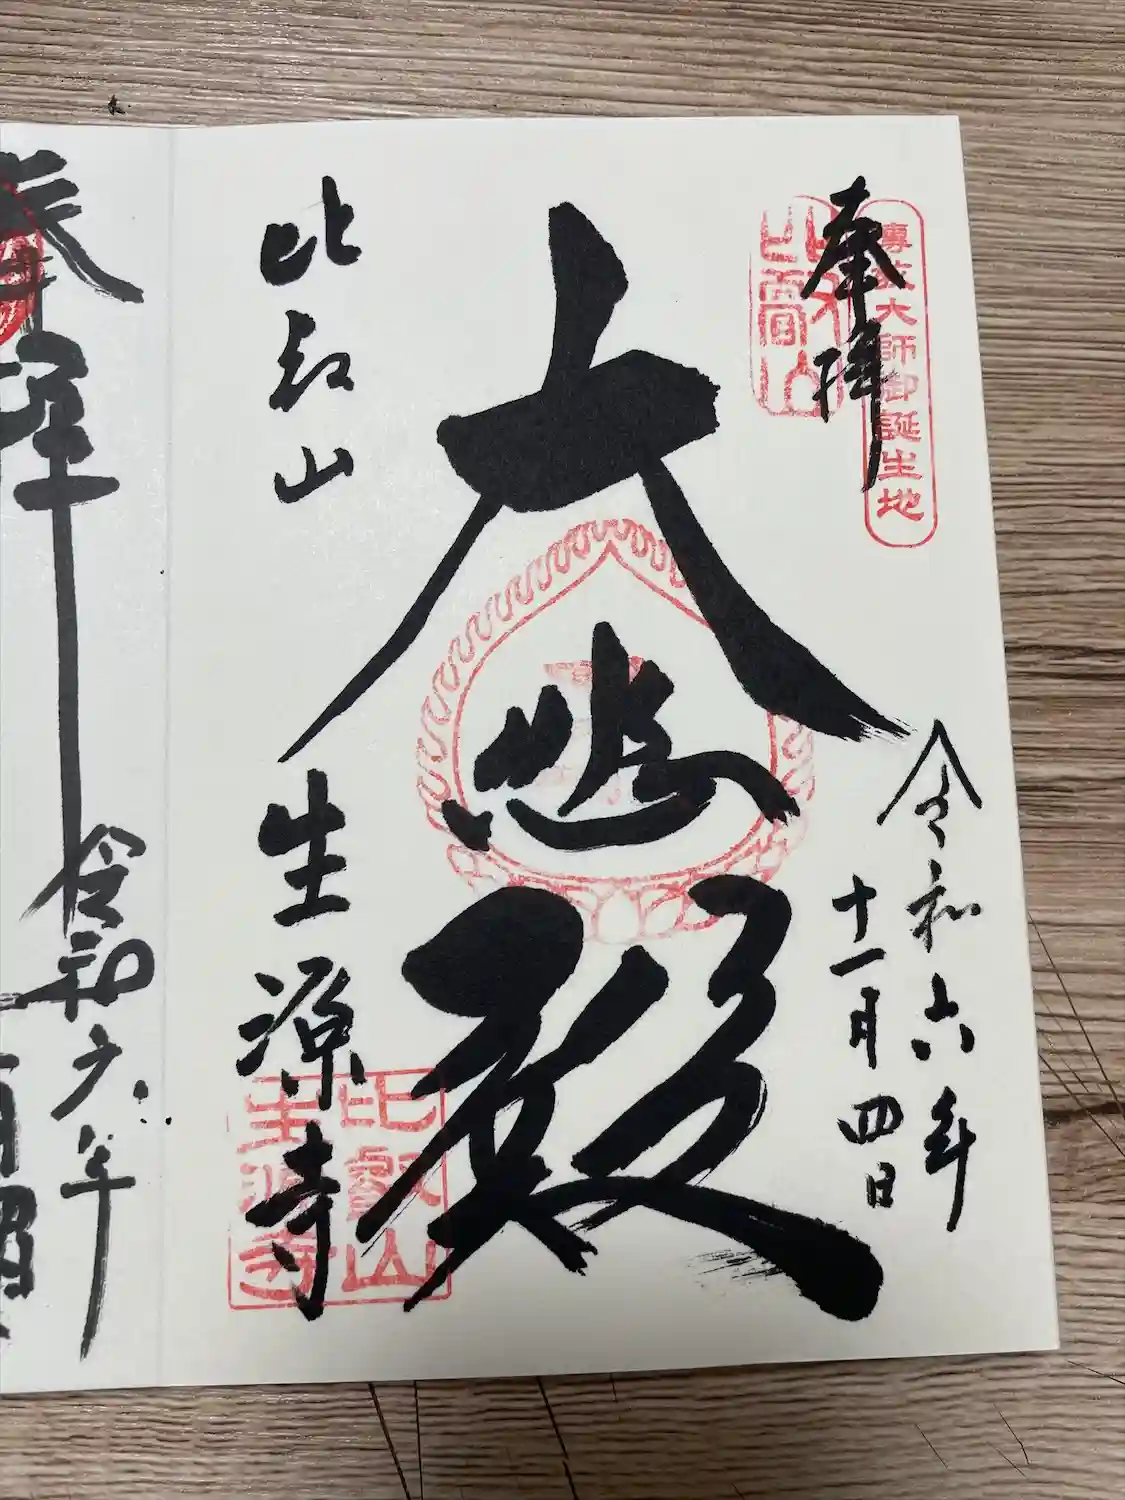 奉拝
傳教大師御誕生地
比叡山
令和六年
十一月四日
大悲殿
比叡山
生源寺
比叡山
生源寺
奉拝
令和六年